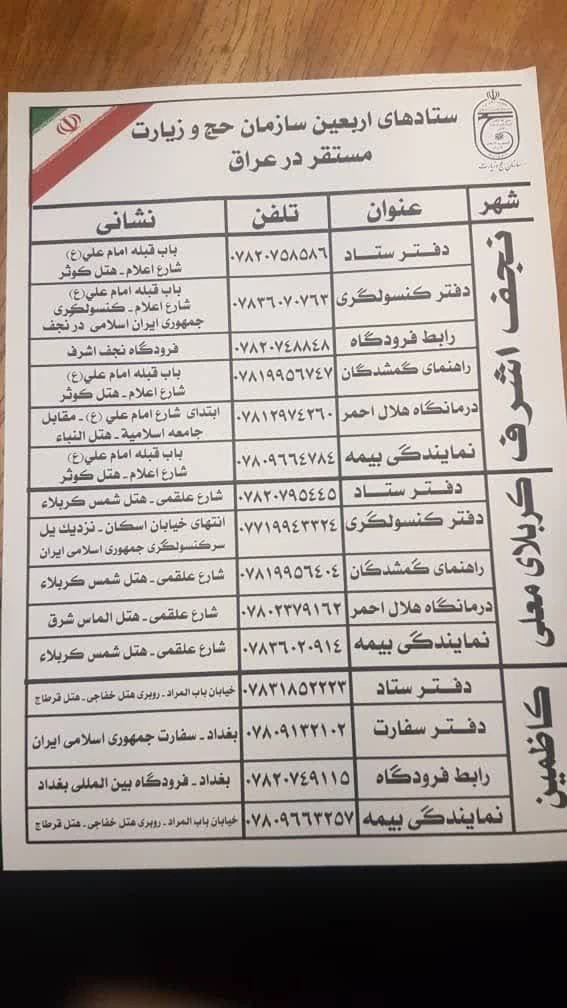 ستادهای اربعین سازمان حج و زیارت
مستقر در عراق
سازمان حج و زیارت
شهر عنوان تلفن نشانی
نجف اشرف
دفتر ستاد ٠٧٨٢٠٧٥٨٥٨٦ باب قبله امام علی(ع)
شارع اعلام - هتل کوثر
دفتر کنسولگری ٠٧٨٣٦٠٧٠٧٦٣ باب قبله امام علی(ع)
شارع اعلام - کنسولگری
جمهوری ایران اسلامی در نجف
رابط فرودگاه ٠٧٨٢٠٧٤٨٨٤٨ فرودگاه نجف اشرف
راهنمای گمشدگان ٠٧٨١٩٩٥٦٧٤٧ باب قبله امام علی(ع)
شارع اعلام - هتل کوثر
درمانگاه هلال احمر ٠٧٨١٢٩٧٤٢٦٠ ابتدای شارع امام علی (ع) - مقابل
جامعه اسلامیة - هتل النباء
نمایندگی بیمه ٠٧٨٠٩٦٦٤٧٨٤ باب قبله امام علی(ع)
شارع اعلام - هتل کوثر
کربلای معلی
دفتر ستاد ٠٧٨٢٠٧٩٥٤٤٥ شارع علقمی - هتل شمس کربلاء
دفتر کنسولگری ٠٧٧١٩٩٤٣٣٢٤ انتهای خیابان اسکان - نزدیك پل
سرکنسولگری جمهوری اسلامی ایران
راهنمای گمشدگان ٠٧٨١٩٩٥٦٤٠٤ شارع علقمی - هتل شمس کربلاء
درمانگاه هلال احمر ٠٧٨٠٢٣٧٩١٦٢ شارع علقمی - هتل الماس شرق
نمایندگی بیمه ٠٧٨٣٦٠٢٠٩١٤ شارع علقمی - هتل شمس کربلاء
کاظمین
دفتر ستاد ٠٧٨٣١٨٥٢٢٢٣ خیابان باب المراد - روبری هتل خفاجی - هتل قرطاج
دفتر سفارت ٠٧٨٠٩١٣٢١٠٢ بغداد - سفارت جمهوری اسلامی ایران
رابط فرودگاه ٠٧٨٢٠٧٤٩١١٥ بغداد - فرودگاه بین المللی بغداد
نمایندگی بیمه ٠٧٨٠٩٦٦٣٢٥٧ خیابان باب المراد - روبری هتل خفاجی - هتل قرطاج